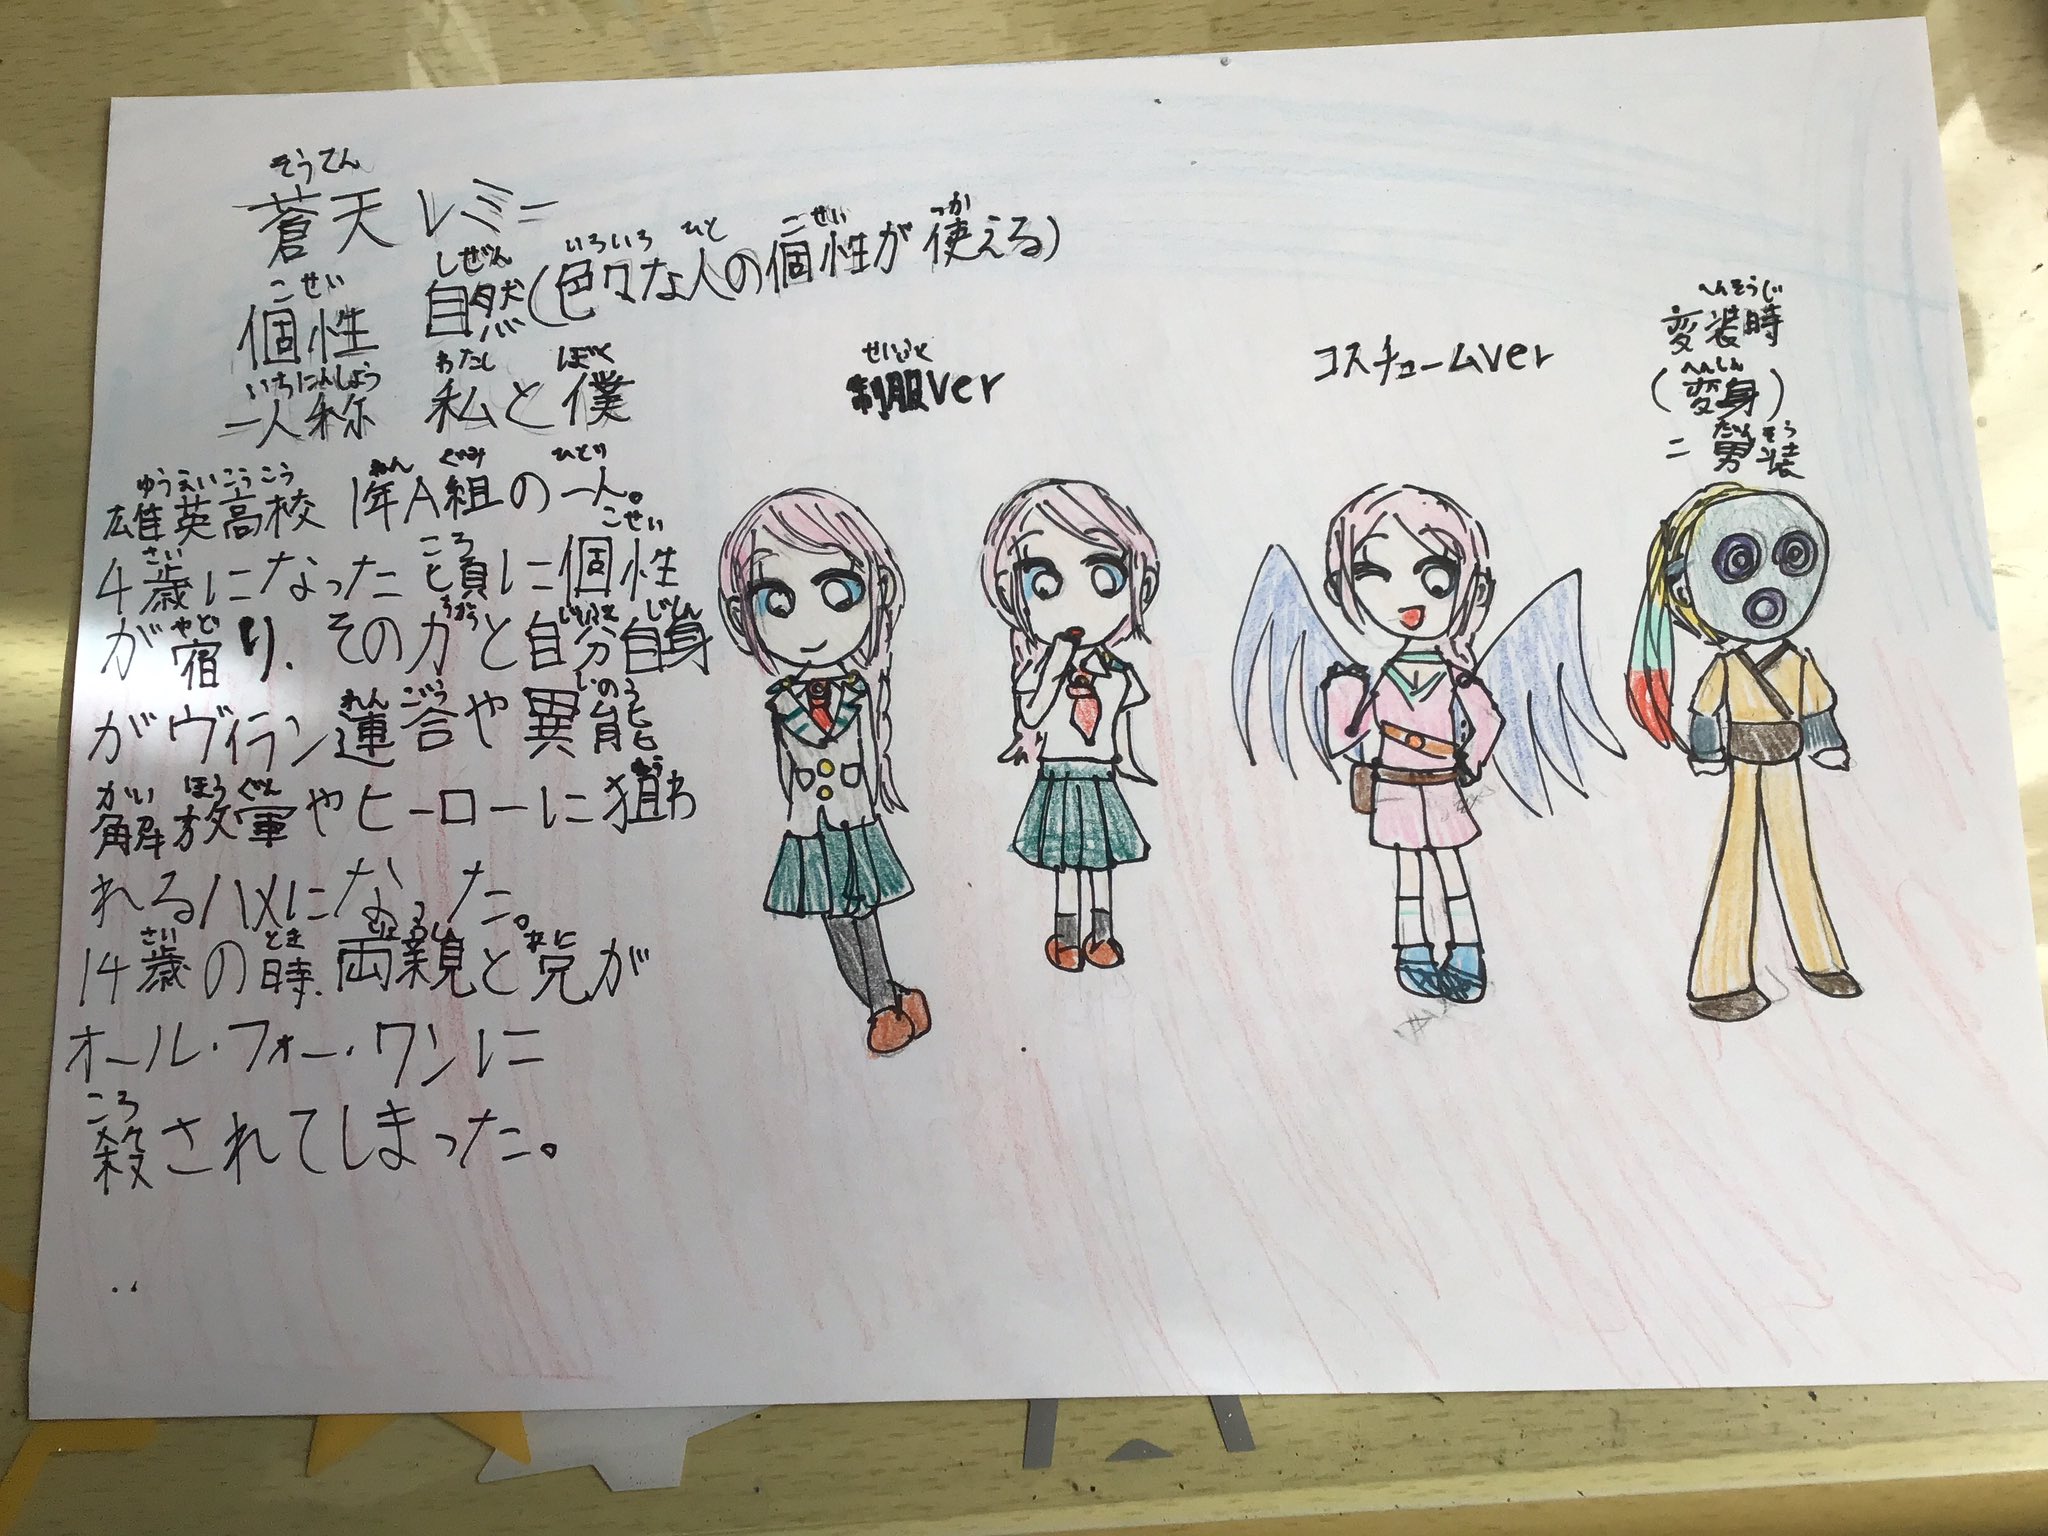 そうてん
蒼天レミー
こせい しぜん いろいろ ひと こせい つか
個性 自然(色々な人の個性が使える)
いちにんしょう わたし ぼく
一人称 私と僕
ゆうえいこうこう ねん ぐみ ひとり
雄英高校 1年A組の一人。
さい ころ こせい
4歳になった頃に個性
やど じぶんじしん
が宿り、その力と自分自身
れんごう いのう
がヴィラン連合や異能
かいほうぐん ねら
解放軍やヒーローに狙わ
れるハメになった。
さい とき りょうしん あに
14歳の時、両親と兄が
オール・フォー・ワンに
ころ
殺されてしまった。
せいふく
制服ver
コスチュームver
へんそうじ
変装時
へんしん
(変身)
だんそう
=男装